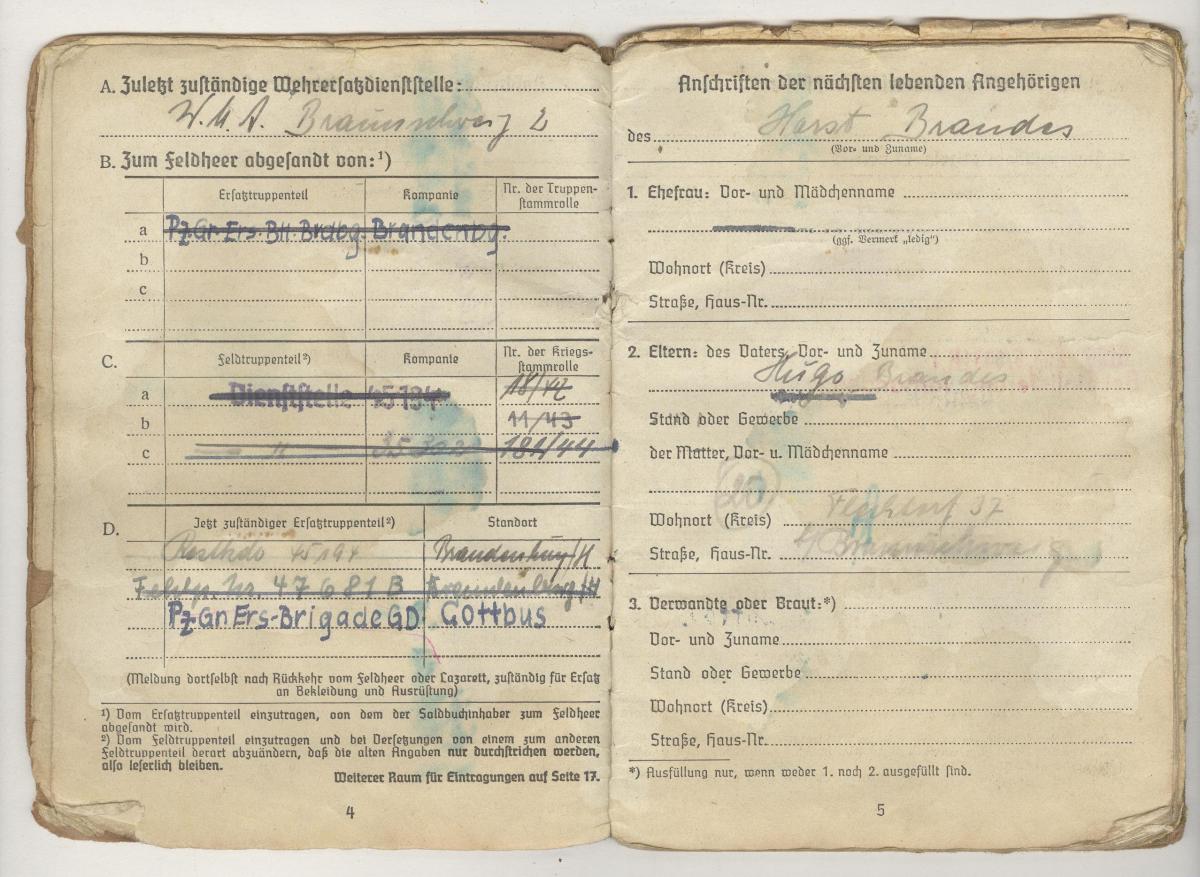 A. Zuletzt zuständige Wehrersatzdienststelle:
W.M.A. Braunschweig 2
B. Zum Feldheer abgesandt von:¹)
Ersatztruppenteil Kompanie Nr. der Truppen-
stammrolle
a Pz.Gr-Ers-Btl-Brdbg. Brandenbg.
b
c
C. Feldtruppenteil²) Kompanie Nr. der Kriegs-
stammrolle
a Dienststelle 45194 18/42
b 11/43
c " 182/44
D. Jetzt zuständiger Ersatztruppenteil²) Standort
Restkdo 45194 Brandenburg/H
Feldp. Nr. 47681 B Brandenburg/H
Pz-Gn Ers-Brigade GD. Cottbus
(Meldung dortselbst nach Rückkehr vom Feldheer oder Lazarett, zuständig für Ersatz
an Bekleidung und Ausrüstung)
¹) Vom Ersatztruppenteil einzutragen, von dem der Soldbuchinhaber zum Feldheer
abgesandt wird.
²) Vom Feldtruppenteil einzutragen und bei Versetzungen von einem zum anderen
Feldtruppenteil derart abzuändern, daß die alten Angaben nur durchstrichen werden,
also leserlich bleiben.
Weiterer Raum für Eintragungen auf Seite 17.
4
Anschriften der nächsten lebenden Angehörigen
des Horst Brandes
(Vor- und Zuname)
1. Ehefrau: Vor- und Mädchenname
(ggf. Vermerk „ledig")
Wohnort (Kreis)
Straße, Haus-Nr.
2. Eltern: des Vaters, Vor- und Zuname
Hugo Brandes
Stand oder Gewerbe
der Mutter, Vor- u. Mädchenname
Wohnort (Kreis) 37
Straße, Haus-Nr. Braunschweig
3. Verwandte oder Braut:*)
Vor- und Zuname
Stand oder Gewerbe
Wohnort (Kreis)
Straße, Haus-Nr.
*) Ausfüllung nur, wenn weder 1. noch 2. ausgefüllt sind.
5